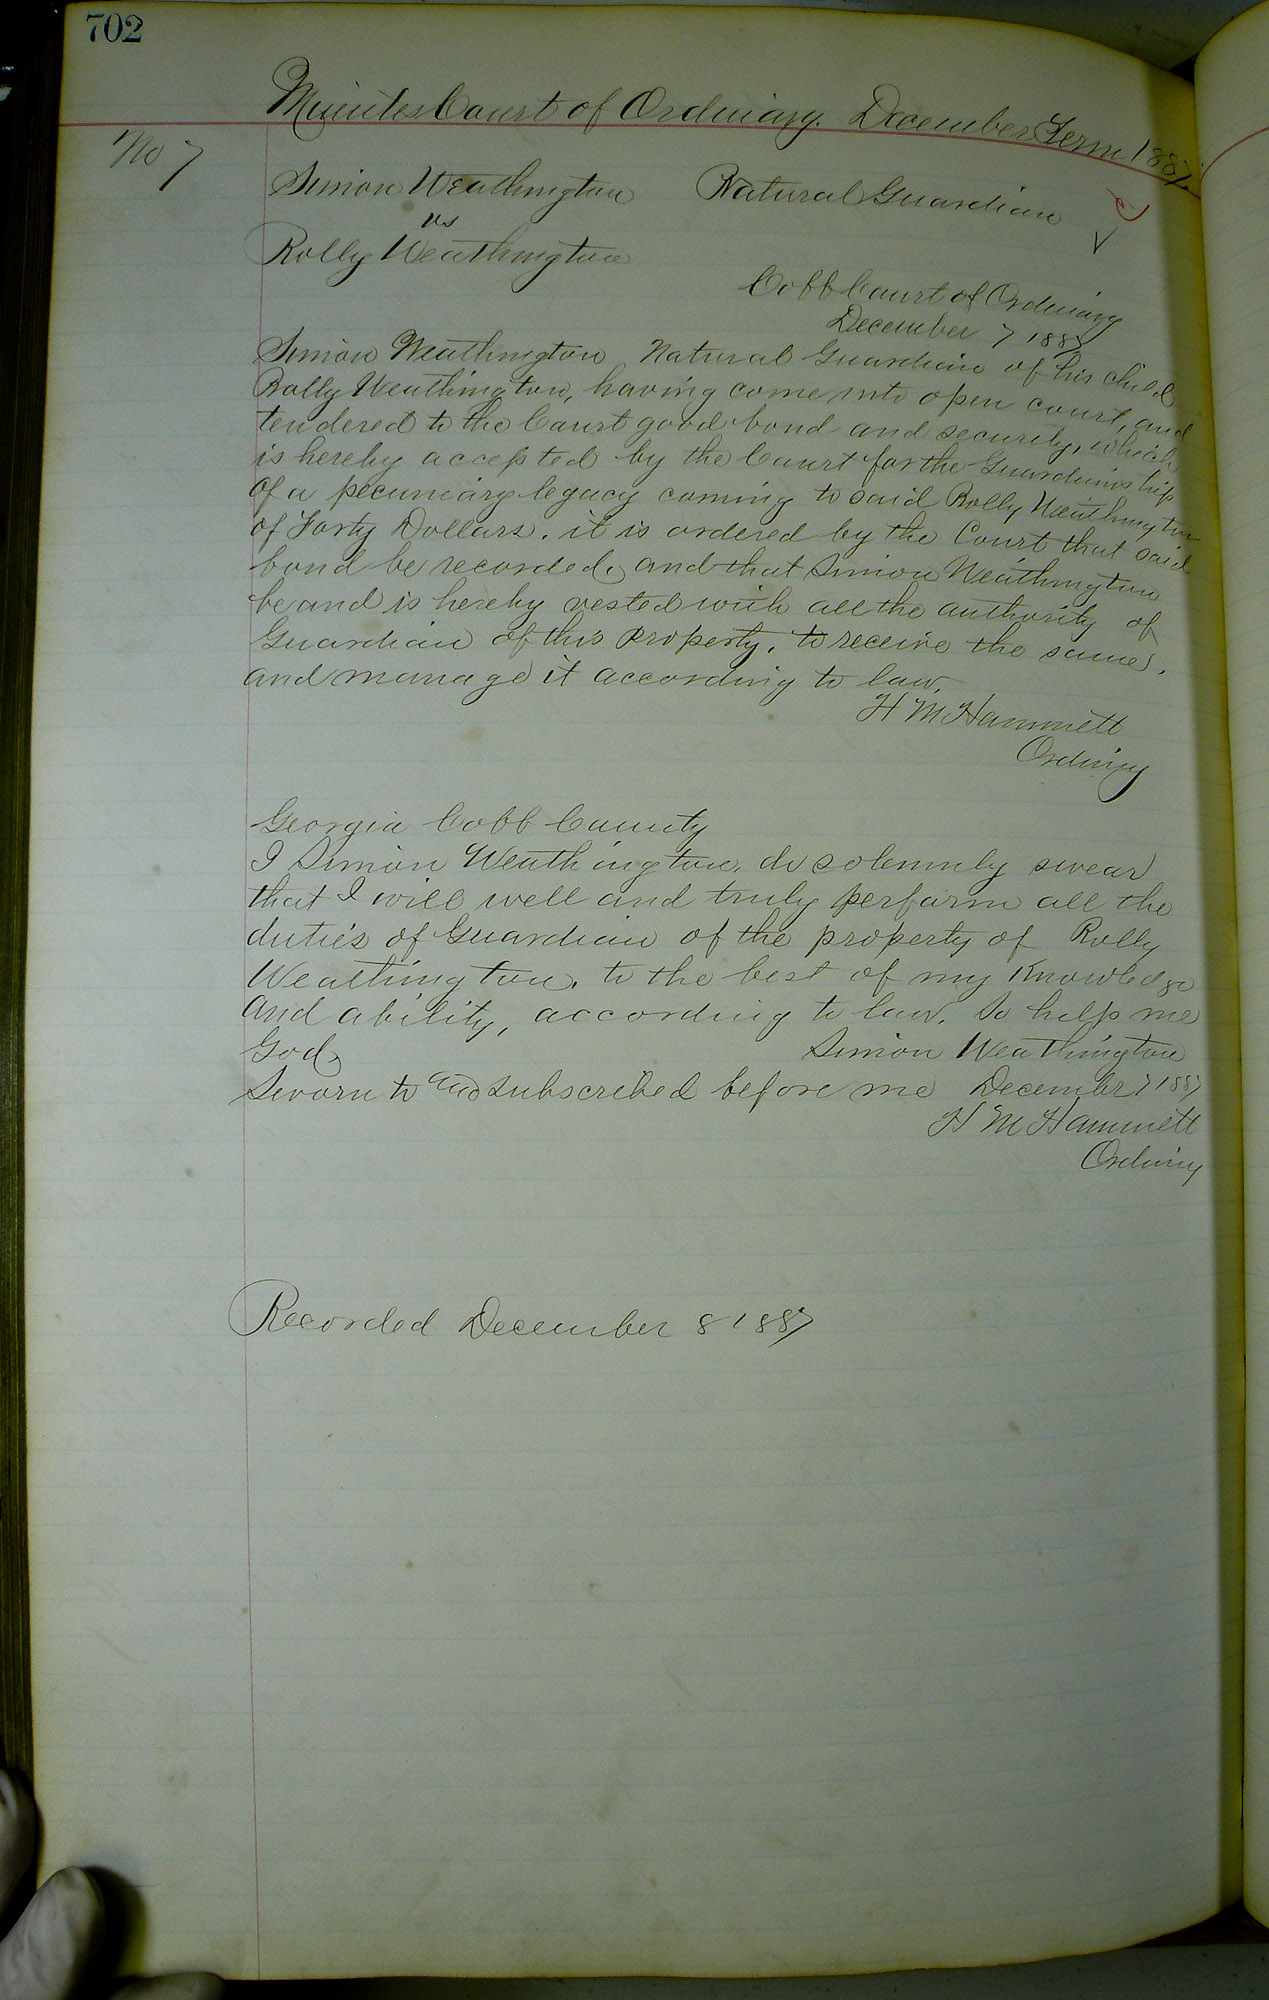 702
Minutes Court of Ordinary. December Term 1887.
No 7
Simion Weathington Natural Guardian
vs
Rolly Weathington
Cobb Court of Ordinary
December 7 1887
Simion Weathington Natural Guardian of his child
Rolly Weathington, having come into open court, and
tendered to the Court good bond and security, which
is hereby accepted by the Court for the Guardianship
of a pecuniary legacy coming to said Rolly Weathington
of Forty Dollars. it is ordered by the Court that said
bond be recorded, and that Simion Weathington
be and is hereby vested with all the authority of
Guardian of this property. to receive the same,
and manage it according to law.
H M Hammett
Ordinary
Georgia Cobb County
I Simion Weathington. do solemnly swear
that I will well and truly perform all the
duties of Guardian of the property of Rolly
Weathington. to the best of my Knowledge
and ability, according to law. So help me
God, Simion Weathington
Sworn to and subscribed before me December 7 1887
H M Hammett
Ordinary
Recorded December 8 1887